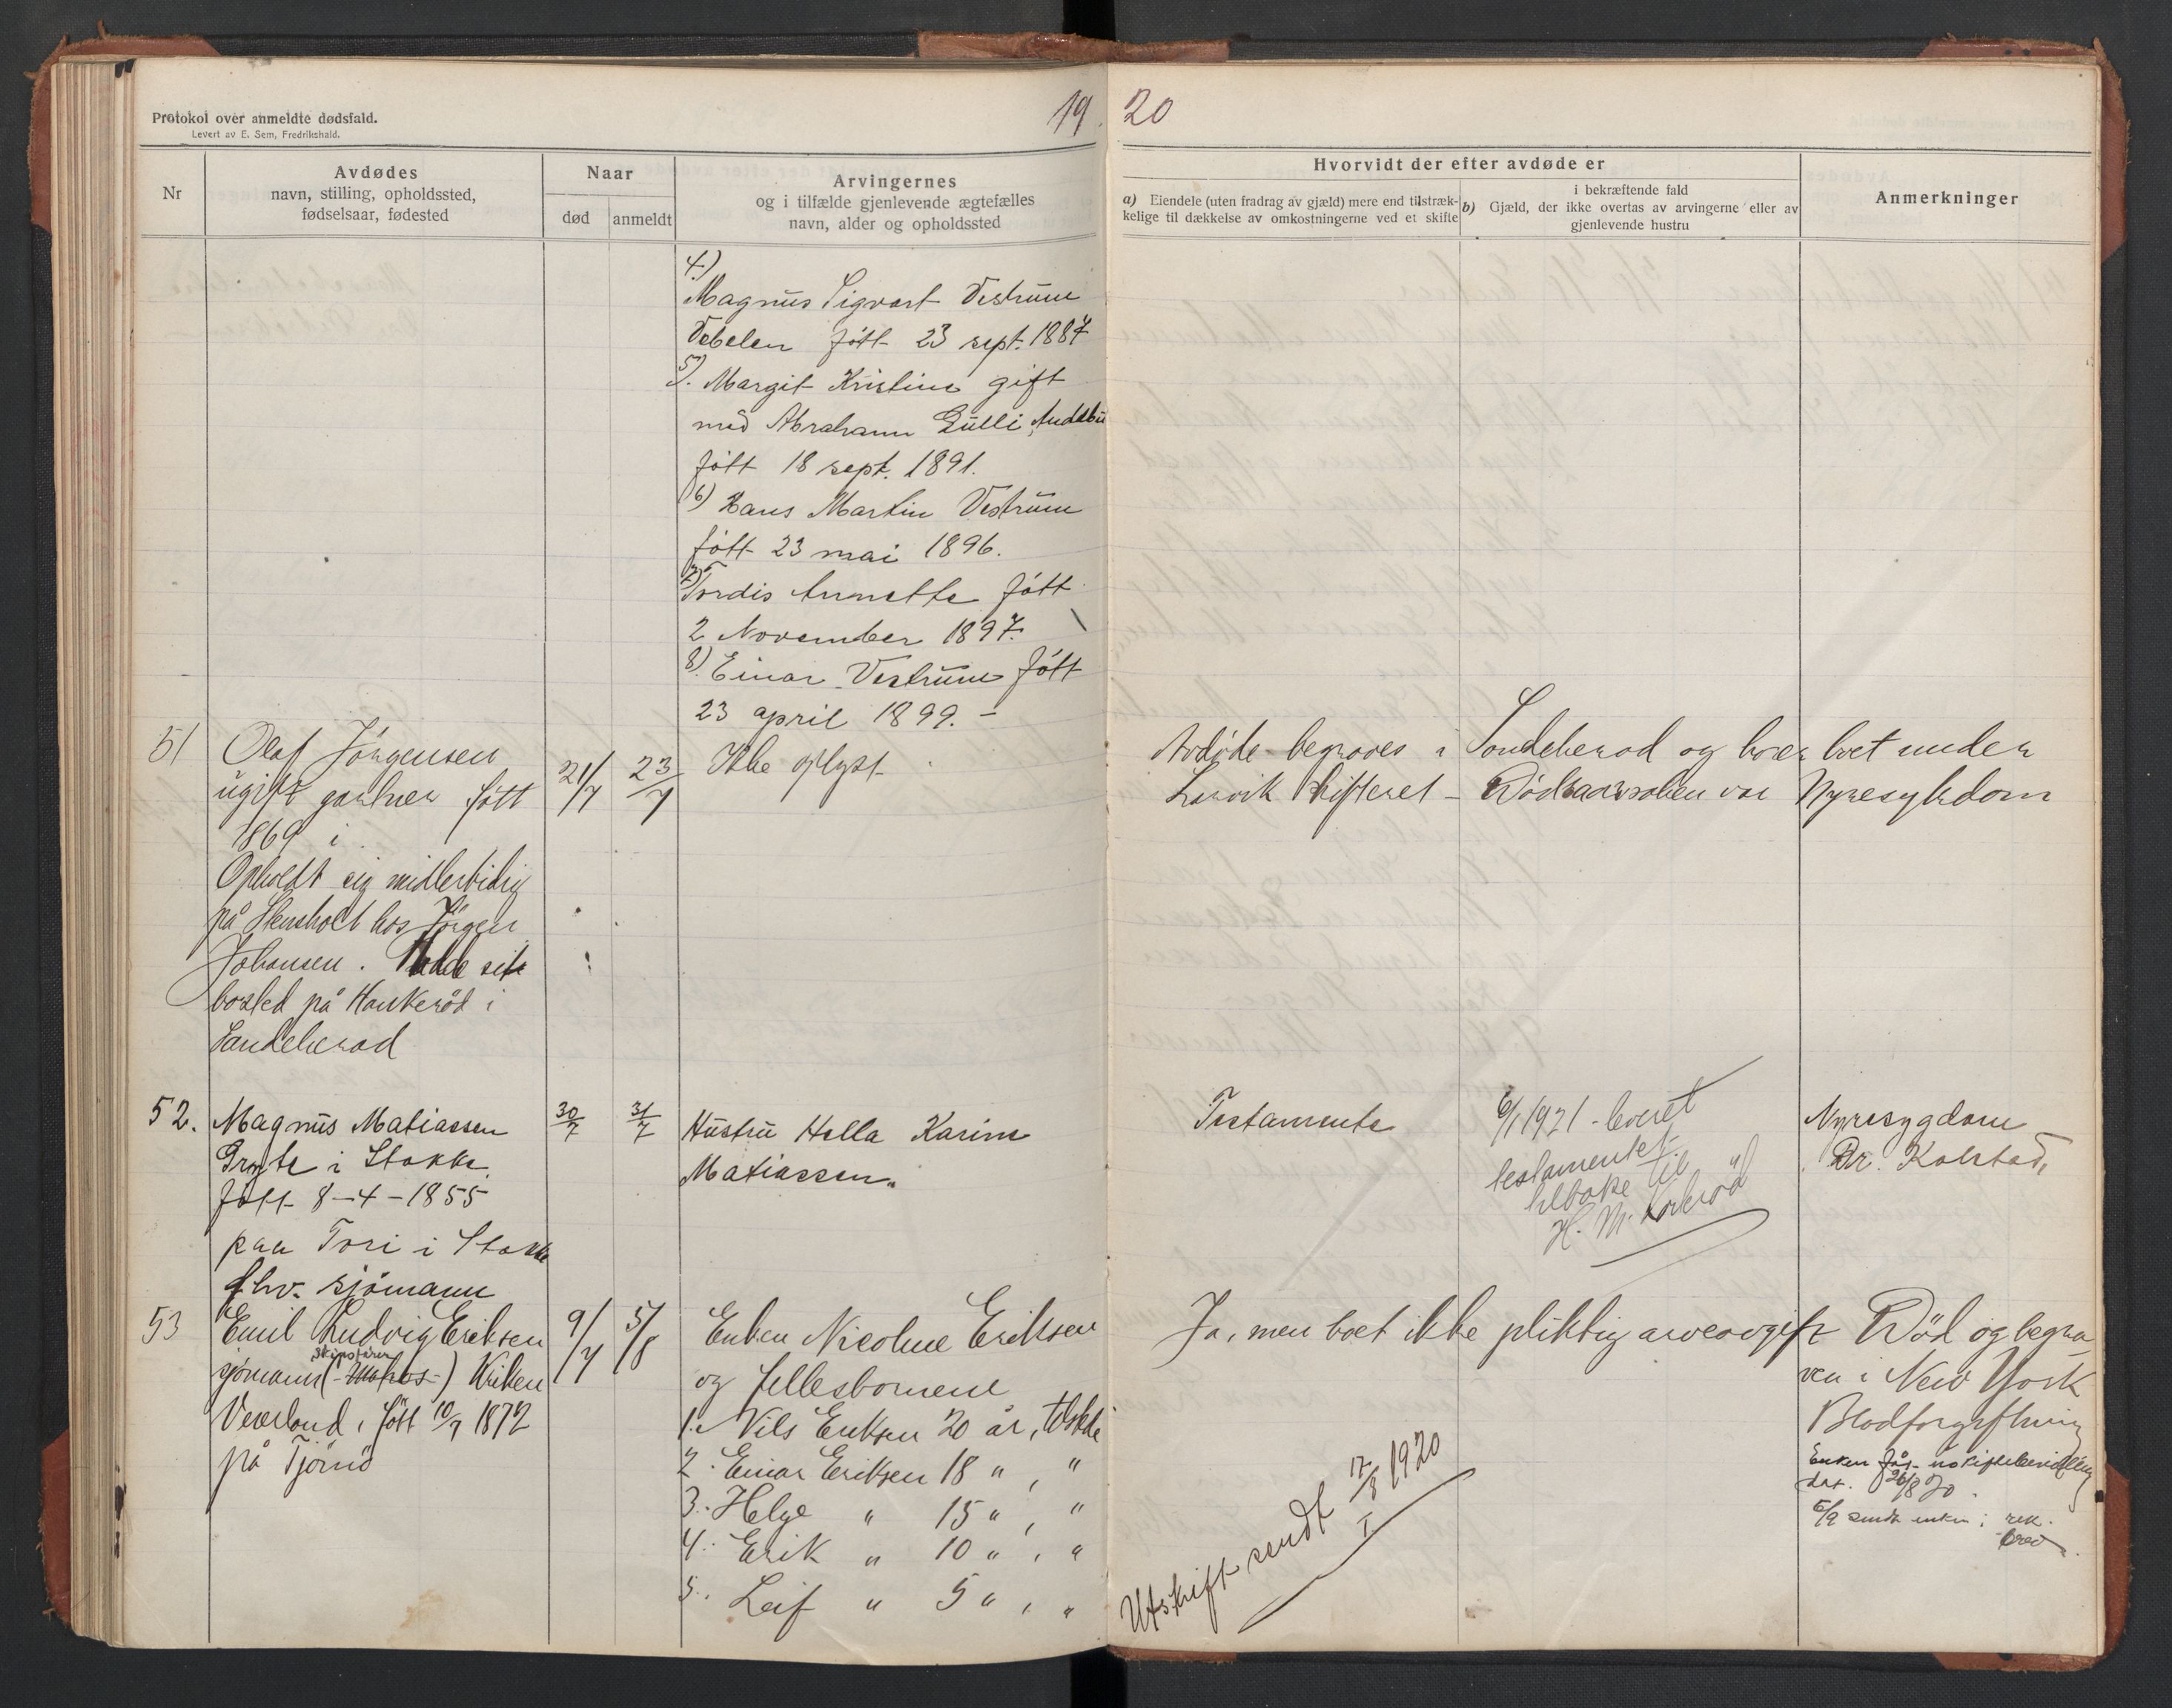 Protokol over anmeldte dødsfald.
Levert av E. Sem, Fredrikshald.
19.
Nr
Avdødes
navn, stilling, opholdssted,
fødselsaar, fødested
Naar
død
anmeldt
Arvingernes
og i tilfælde gjenlevende ægtefælles
navn, alder og opholdssted
4.)
Magnus Sigvart Vestrum
Vebelen født 23 sept. 1887
5). Margit Kristine gift
med Abraham Gulli Andebu
født 18 sept. 1891.
6) Hans Martin Vestrum
født 23 mai 1896.
7) Tordis Annette født
2 November 1897.
8). Einar Vestrum født
23 april 1899. –
51
Olaf Jörgensen
ugift gartner født
1869 i
Opholdt sig midlertidig
på Stensholt hos Jörgen
Johansen. Hadde sit
bosted på Haukeröd i
Sandeherad
21/7
23/7
Ikke oplyst
52.
Magnus Matiassen
Grgte i Stokke.
født 8-4-1855
paa Tori i Stokke
fhv. sjömann
30/7
31/7
Hustru Hella Karine
Matiassen.
53
Emil Ludvig Eriksen
skipsfører
sjömann (-) Kriken
Veierland, født 10/7 1872
på Tjömö
9/7
5/8
Enken Nicoline Eriksen
og fellesbornene
1. Nils Eriksen 20 år,
2. Einar Eriksen 18 " , "
3. Helge " 15 " , "
4. Erik " 10 " , "
5. Leif " 5 " , "
20
Hvorvidt der efter avdøde er
a) Eiendele (uten fradrag av gjæld) mere end tilstræk-
kelige til dækkelse av omkostningerne ved et skifte
i bekræftende fald
b) Gjæld, der ikke overtas av arvingerne eller av
gjenlevende hustru
Anmerkninger
Avdöde begraves i Sandeherad og hører boet under
Larvik skifteret – Dödsaarsaken var Nyresykdom
Testamente
6/1 1921 leveret
testamentet
tilbake til
H. M. Korkeröd
Nyresygdom
Dr. Kolstad,
Ja, men boet ikke pliktig arveavgift
Död og begra
ven i New York
Blodforgiftning
Enken får uskiftebevilling
dat. 26/8 20.
5/9 sendt enken i rek.
brev.
Utskift sendt 17/8 1920